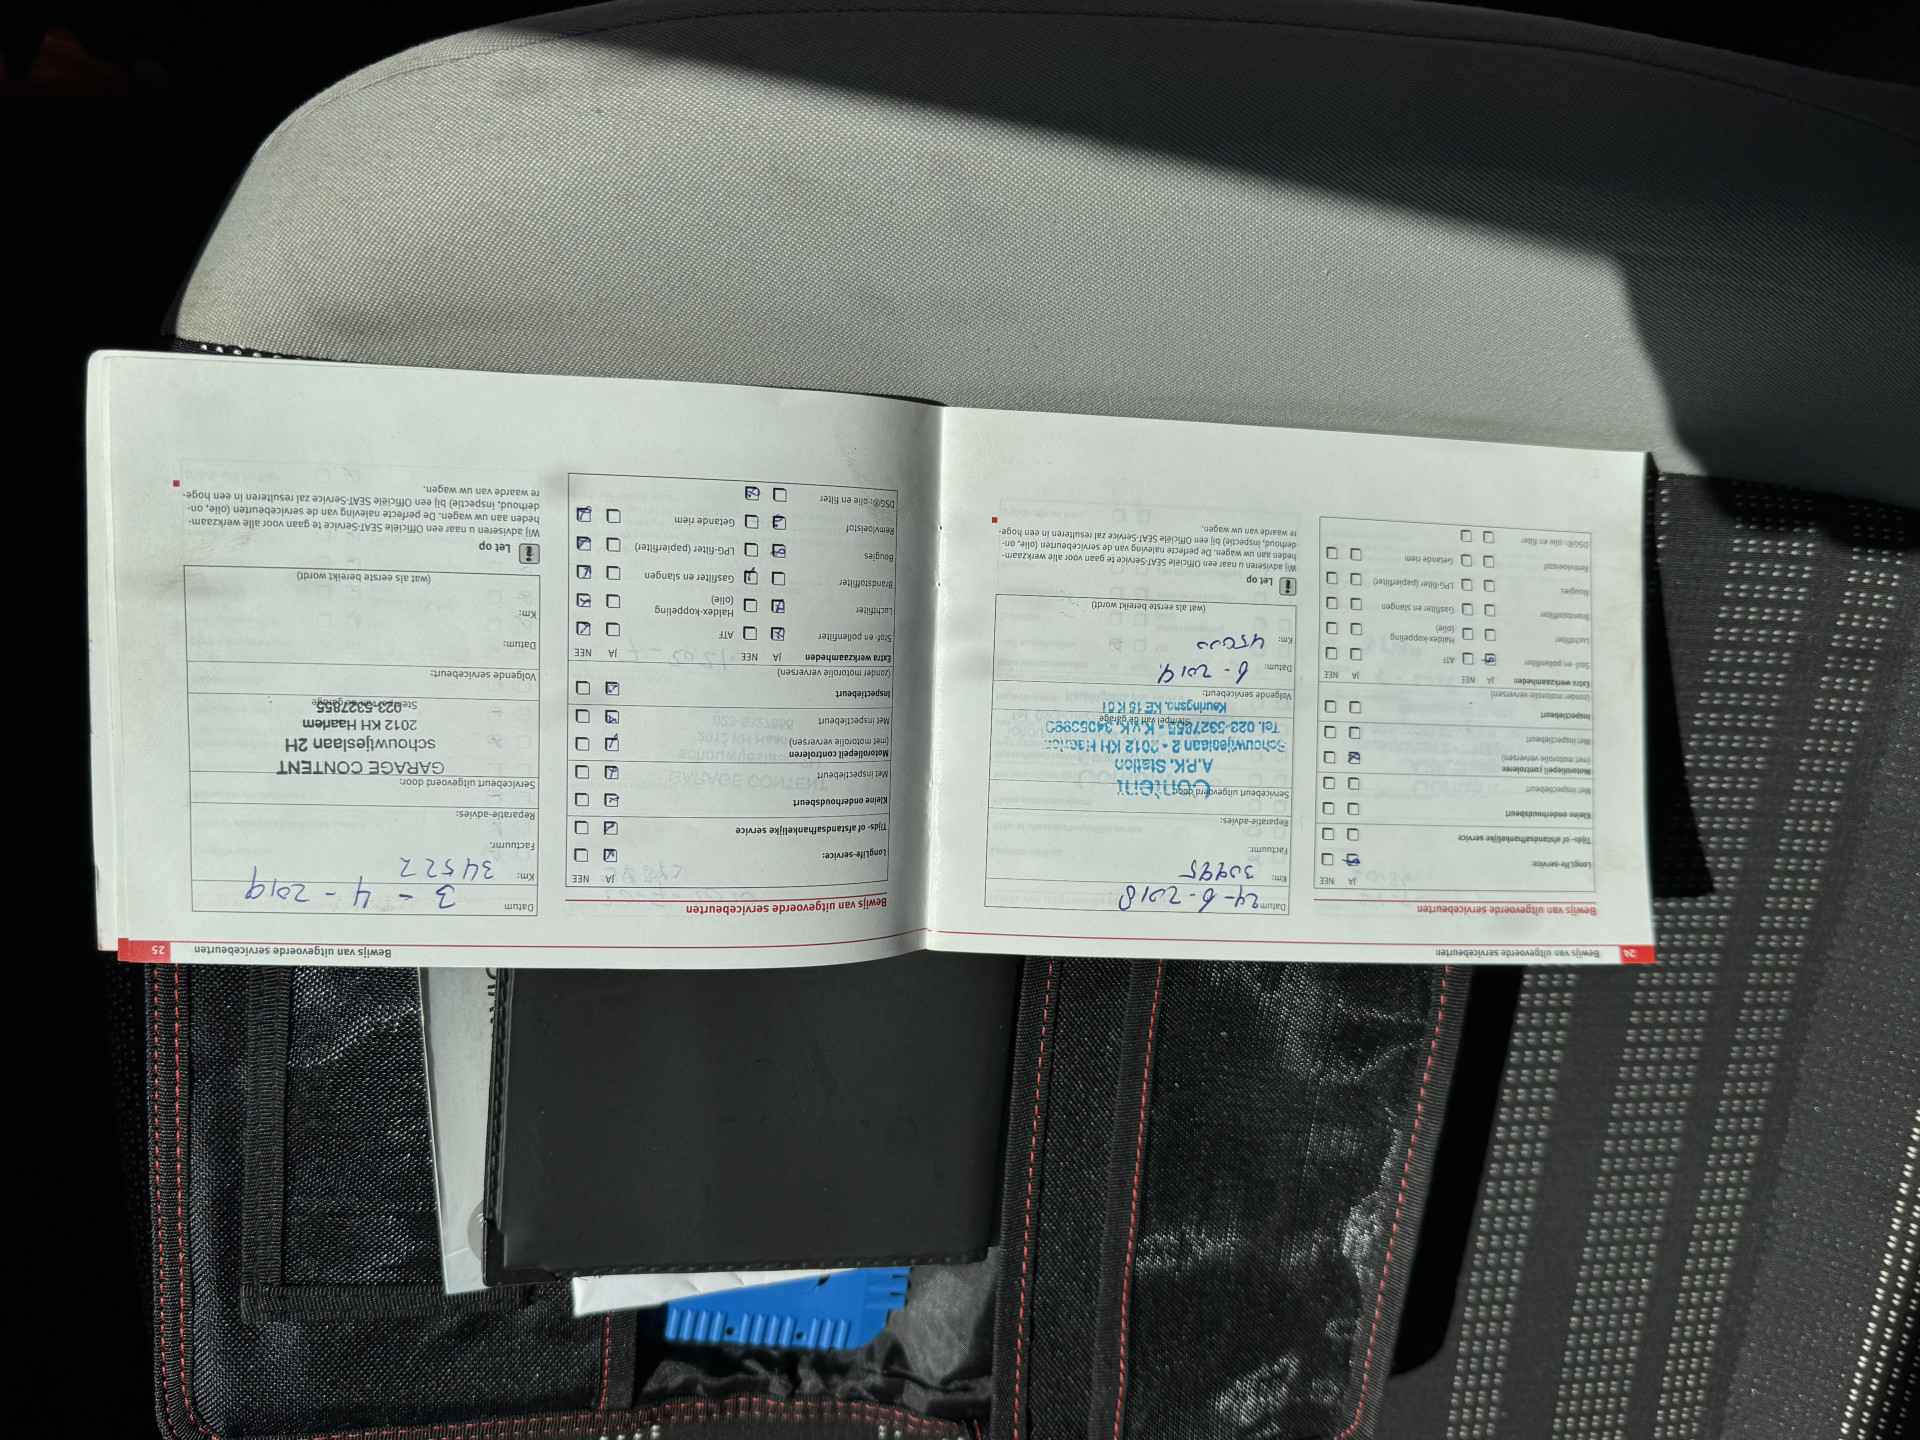 24 Bewijs van uitgevoerde servicebeurten
Bewijs van uitgevoerde servicebeurten
JA NEE
LongLife-service:
Tijds- of afstandsafhankelijke service
Kleine onderhoudsbeurt
Met inspectiebeurt
Motoroliepeil controleren
(met motorolie verversen)
Met inspectiebeurt
Inspectiebeurt
(zonder motorolie verversen)
Extra werkzaamheden JA NEE JA NEE
Stof- en pollenfilter ATF
Luchtfilter Haldex-koppeling
(olie)
Brandstoffilter Gasfilter en slangen
Bougies LPG-filter (papierfilter)
Remvloeistof Getande riem
DSG®: olie en filter
Datum 24-6-2018
Km:
Factuurnr.
Reparatie-advies:
Servicebeurt uitgevoerd door:
Content
A.P.K. Station
Schouwtjeslaan 2 • 2012 KH Haarlem
Stempel van de garage
Tel. 023-5327855 • K.v.K. 34053993
Keuringsnr.
Volgende servicebeurt:
Datum: 6-2019
Km: 45000
(wat als eerste bereikt wordt)
Let op
Wij adviseren u naar een Officiële SEAT-Service te gaan voor alle werkzaam-
heden aan uw wagen. De perfecte naleving van de servicebeurten (olie, on-
derhoud, inspectie) bij een Officiële SEAT-Service zal resulteren in een hoge-
re waarde van uw wagen.
Bewijs van uitgevoerde servicebeurten 25
Bewijs van uitgevoerde servicebeurten
JA NEE
LongLife-service:
Tijds- of afstandsafhankelijke service
Kleine onderhoudsbeurt
Met inspectiebeurt
Motoroliepeil controleren
(met motorolie verversen)
Met inspectiebeurt
Inspectiebeurt
(zonder motorolie verversen)
Extra werkzaamheden JA NEE JA NEE
Stof- en pollenfilter ATF
Luchtfilter Haldex-koppeling
(olie)
Brandstoffilter Gasfilter en slangen
Bougies LPG-filter (papierfilter)
Remvloeistof Getande riem
DSG®: olie en filter
Datum 3-4-2019
Km: 34522
Factuurnr.
Reparatie-advies:
Servicebeurt uitgevoerd door:
GARAGE CONTENT
schouwtjeslaan 2H
2012 KH Haarlem
Stempel van de garage
023-5327855
Volgende servicebeurt:
Datum:
Km:
(wat als eerste bereikt wordt)
Let op
Wij adviseren u naar een Officiële SEAT-Service te gaan voor alle werkzaam-
heden aan uw wagen. De perfecte naleving van de servicebeurten (olie, on-
derhoud, inspectie) bij een Officiële SEAT-Service zal resulteren in een hoge-
re waarde van uw wagen.